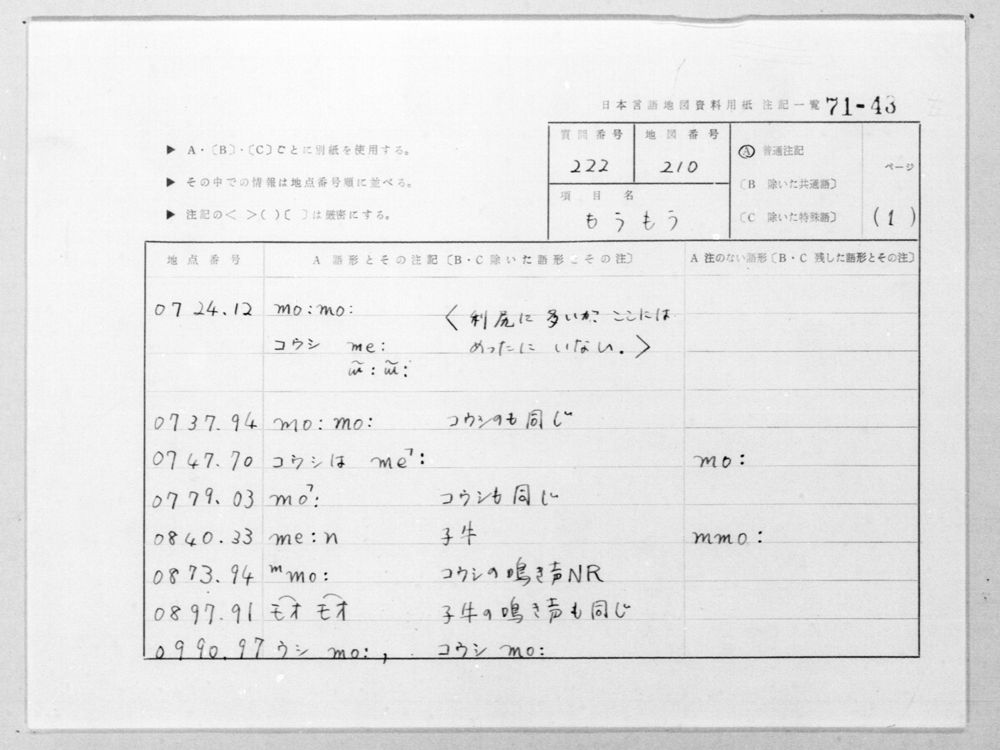 日本言語地図資料用紙 注記一覧 71-43
▶ A・〔B〕・〔C〕ごとに別紙を使用する。
▶ その中での情報は地点番号順に並べる。
▶ 注記の< >( )〔 〕は厳密にする。
質問番号 地図番号
222 210
項目名
もうもう
Ⓐ 普通注記
〔B 除いた共通語〕
〔C 除いた特殊語〕
ページ
(1)
地点番号 A 語形とその注記〔B・C除いた語形とその注〕 A 注のない語形〔B・C 残した語形とその注〕
0724.12 mo:mo: <利尻に多いが、ここには
コウシ me: めったに いない。>
w̃: w̃:
0737.94 mo: mo: コウシのも同じ
0747.70 コウシは me˺: mo:
0779.03 mo˺: コウシも同じ
0840.33 me:n 子牛 mmo:
0873.94 ᵐmo: コウシの鳴き声NR
0897.91 モオ モオ 子牛の鳴き声も同じ
0990.97 ウシ mo:, コウシ mo: